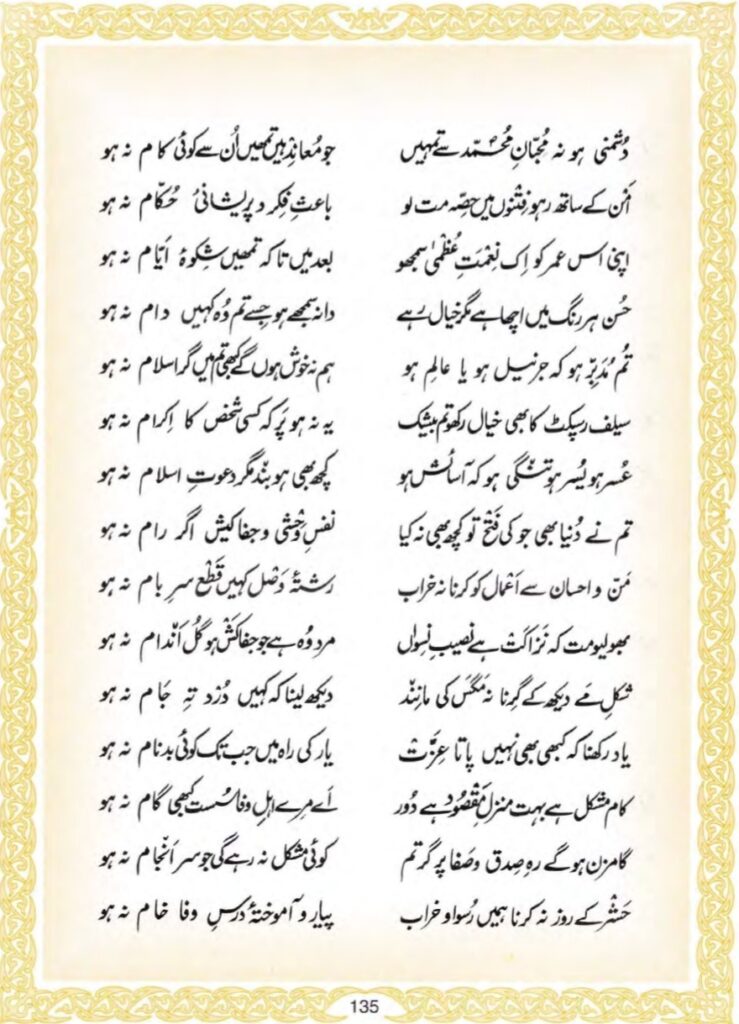 دُشمنی ہو نہ مُحبّانِ مُحمّدؐ سے تمہیں جو مُعانِد ہیں تمھیں اُن سے کوئی کام نہ ہو
اَمن کے ساتھ رہو فِتنوں میں حِصّہ مت لو باعثِ فِکر و پریشانیٔ حُکّام نہ ہو
اپنی اس عمر کو اِک نِعْمَتِ عُظْمٰی سمجھو بعد میں تا کہ تمھیں شِکوۂ ایّام نہ ہو
حُسن ہر رنگ میں اچھا ہے مگر خیال رہے دانہ سمجھے ہو جسے تم وُہ کہیں دام نہ ہو
تُم مُدَبِّر ہو کہ جرنیل ہو یا عالِم ہو ہم نہ خوش ہوں گے کبھی تم میں گر اسلام نہ ہو
سیلف رسپکٹ کا بھی خیال رکھو تم بیشک یہ نہ ہو پَر کہ کسی شخص کا اِکرام نہ ہو
عُسر ہو یُسر ہو تنگی ہو کہ آسائش ہو کچھ بھی ہو بند مگر دعوتِ اسلام نہ ہو
تم نے دُنیا بھی جو کی فَتْح تو کچھ بھی نہ کیا نفسِ وحشی و جفا کیش اگر رام نہ ہو
مَنّ و احسان سے اَعْمال کو کرنا نہ خراب رشتۂ وَصْل کہیں قَطْع سرِ بام نہ ہو
بھولیو مت کہ نَزاکَتْ ہے نصیبِ نِسواں مرد وُہ ہے جو جفا کَش ہو گُل اَنْدام نہ ہو
شکلِ مَے دیکھ کے گِرنا نہ مَگَس کی مانِنْد دیکھ لینا کہ کہیں دُرْد تہِ جَام نہ ہو
یاد رکھنا کہ کبھی بھی نہیں پاتا عِزّت یار کی راہ میں جب تک کوئی بدنام نہ ہو
کام مشکل ہے بہت منزلِ مَقْصُود ہے دُور اَے مِرے اہلِ وفا سُست کبھی گام نہ ہو
گامزن ہو گے رہِ صِدق و صَفا پر گر تم کوئی مشکل نہ رہے گی جو سر اَنْجام نہ ہو
حَشْر کے روز نہ کرنا ہمیں رُسوا و خراب پیارو آموختۂ دَرْسِ وفا خام نہ ہو
135